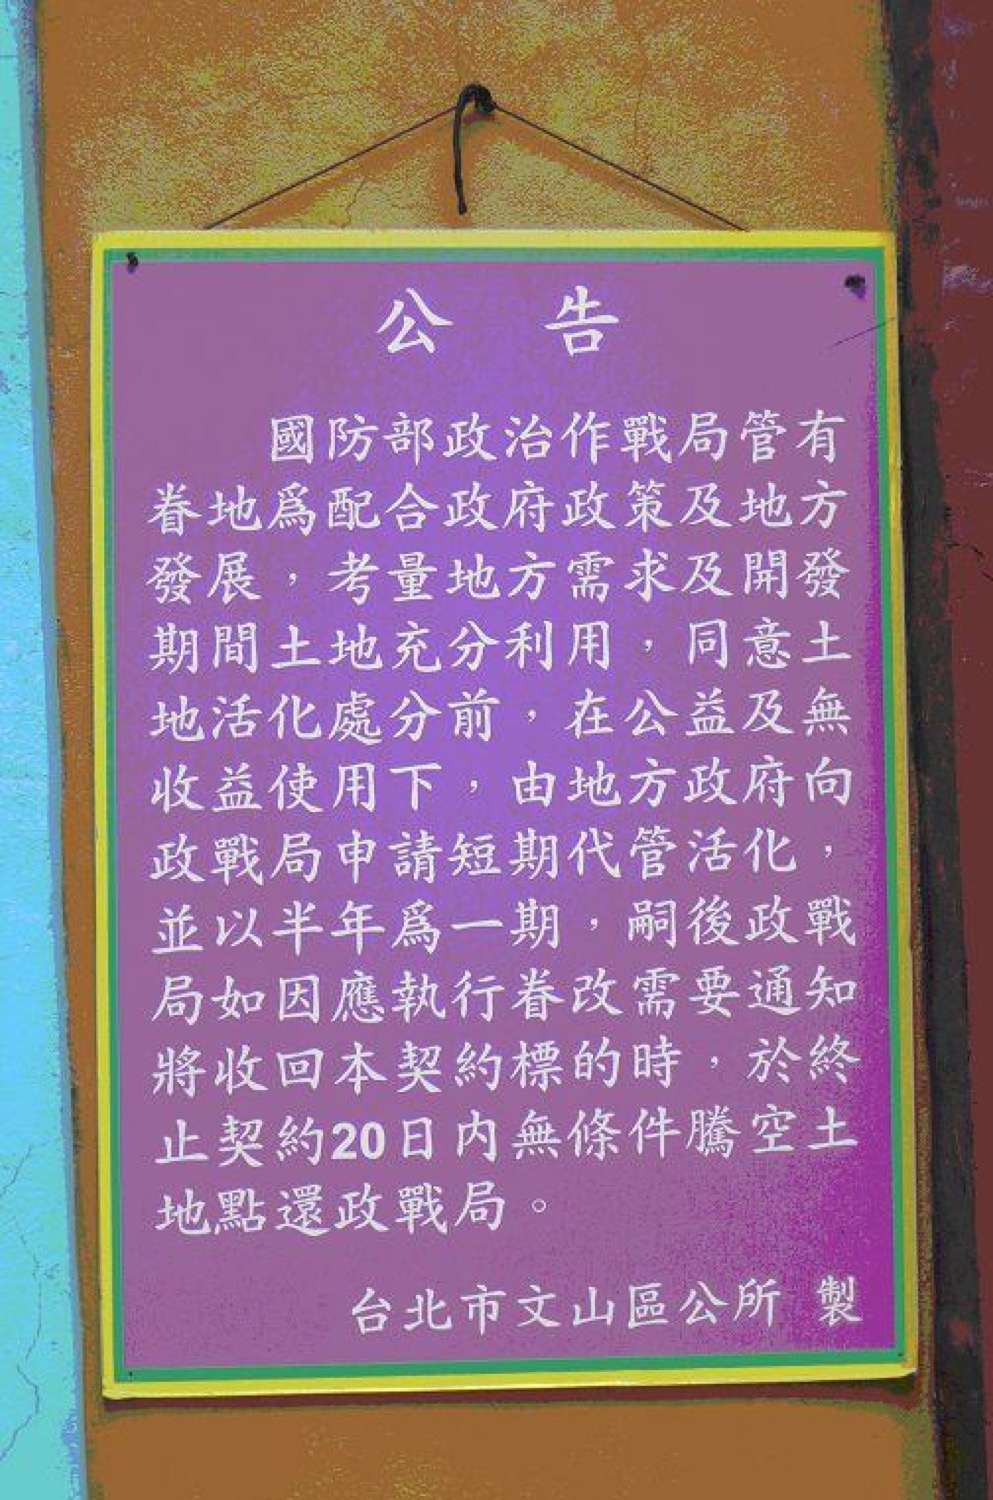 公 告
國防部政治作戰局管有
眷地爲配合政府政策及地方
發展，考量地方需求及開發
期間土地充分利用，同意土
地活化處分前，在公益及無
收益使用下，由地方政府向
政戰局申請短期代管活化，
並以半年爲一期，嗣後政戰
局如因應執行眷改需要通知
將收回本契約標的時，於終
止契約20日內無條件騰空土
地點還政戰局。
台北市文山區公所 製